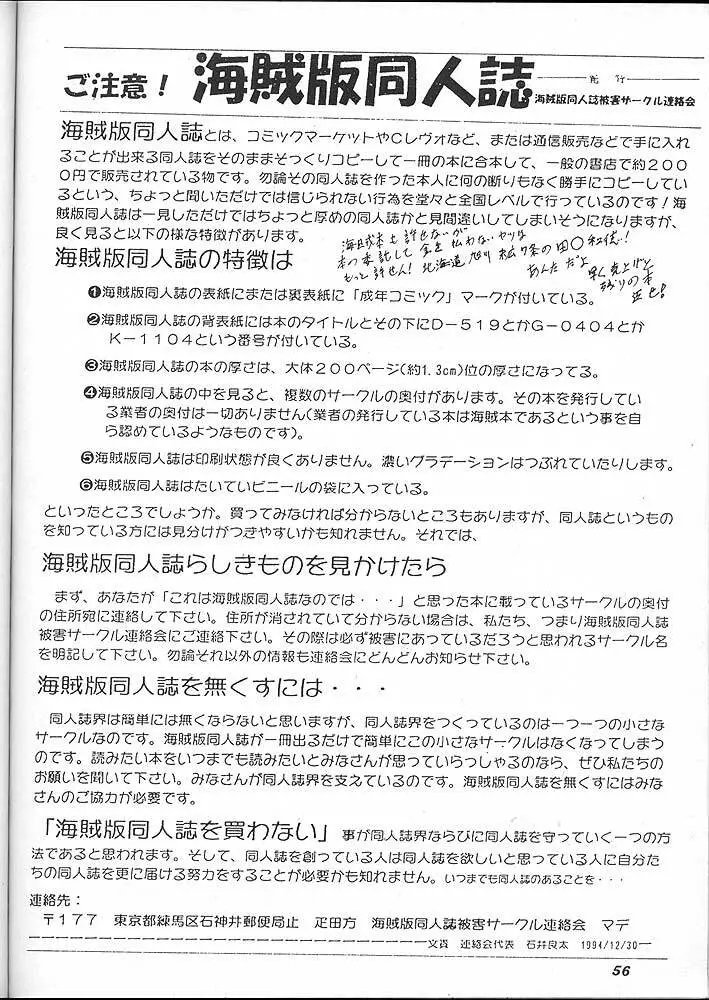 ご注意！ 海賊版同人誌 発行
海賊版同人誌被害サークル連絡会
海賊版同人誌とは、コミックマーケットやCレヴォなど、または通信販売などで手に入れ
ることが出来る同人誌をそのままそっくりコピーして一冊の本に合本して、一般の書店で約２００
０円で販売されている物です。勿論その同人誌を作った本人に何の断りもなく勝手にコピーしてい
るという、ちょっと聞いただけでは信じられない行為を堂々と全国レベルで行っているのです！海
賊版同人誌は一見しただけではちょっと厚めの同人誌かと見間違いしてしまいそうになりますが、
良く見ると以下の様な特徴があります。
海賊本も許せないが
本の委託して金を払わないヤツは
もっと許せん！北海道旭川
あんただよ
売上げと
残りの本
海賊版同人誌の特徴は
❶海賊版同人誌の表紙にまたは裏表紙に「成年コミック」マークが付いている。
❷海賊版同人誌の背表紙には本のタイトルとその下にＤ－５１９とかＧ－０４０４とか
Ｋ－１１０４という番号が付いている。
❸海賊版同人誌の本の厚さは、大体２００ページ(約1.3㎝)位の厚さになってる。
❹海賊版同人誌の中を見ると、複数のサークルの奥付があります。その本を発行してい
る業者の奥付は一切ありません(業者の発行している本は海賊本であるという事を自
ら認めているようなものです)。
❺海賊版同人誌は印刷状態が良くありません。濃いグラデーションはつぶれていたりします。
❻海賊版同人誌はたいていビニールの袋に入っている。
といったところでしょうか。買ってみなければ分からないところもありますが、同人誌というもの
を知っている方には見分けがつきやすいかも知れません。それでは、
海賊版同人誌らしきものを見かけたら
まず、あなたが「これは海賊版同人誌なのでは・・・」と思った本に載っているサークルの奥付
の住所宛に連絡して下さい。住所が消されていて分からない場合は、私たち、つまり海賊版同人誌
被害サークル連絡会にご連絡下さい。その際は必ず被害にあっているだろうと思われるサークル名
を明記して下さい。勿論それ以外の情報も連絡会にどんどんお知らせ下さい。
海賊版同人誌を無くすには・・・
同人誌界は簡単には無くならないと思いますが、同人誌界をつくっているのは一つ一つの小さな
サークルなのです。海賊版同人誌が一冊出るだけで簡単にこの小さなサークルはなくなってしまう
のです。読みたい本をいつまでも読みたいとみなさんが思っていらっしゃるのなら、ぜひ私たちの
お願いを聞いて下さい。みなさんが同人誌界を支えているのです。海賊版同人誌を無くすにはみな
さんのご協力が必要です。
「海賊版同人誌を買わない」事が同人誌界ならびに同人誌を守っていく一つの方
法であると思われます。そして、同人誌を創っている人は同人誌を欲しいと思っている人に自分た
ちの同人誌を更に届ける努力をすることが必要かも知れません。いつまでも同人誌のあることを・・・
連絡先：
〒１７７　東京都練馬区石神井郵便局止　疋田方　海賊版同人誌被害サークル連絡会　マデ
文責　連絡会代表　石井良太　1994/12/30
56